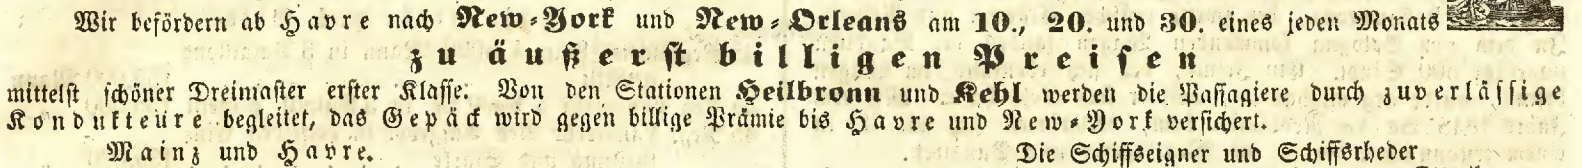 Wir befördern ab Havre nach New-York und New-Orleans am 10., 20. und 30. eines jeden Monats
zu äußerst billigen Preisen
mittelst schöner Dreimaster erster Klasse. Von den Stationen Heilbronn und Kehl werden die Passagiere durch zuverlässige
Kondukteure begleitet, das Gepäck wird gegen billige Prämie bis Havre und New-York versichert.
Mainz und Havre.
Die Schiffseigner und Schiffsrheder